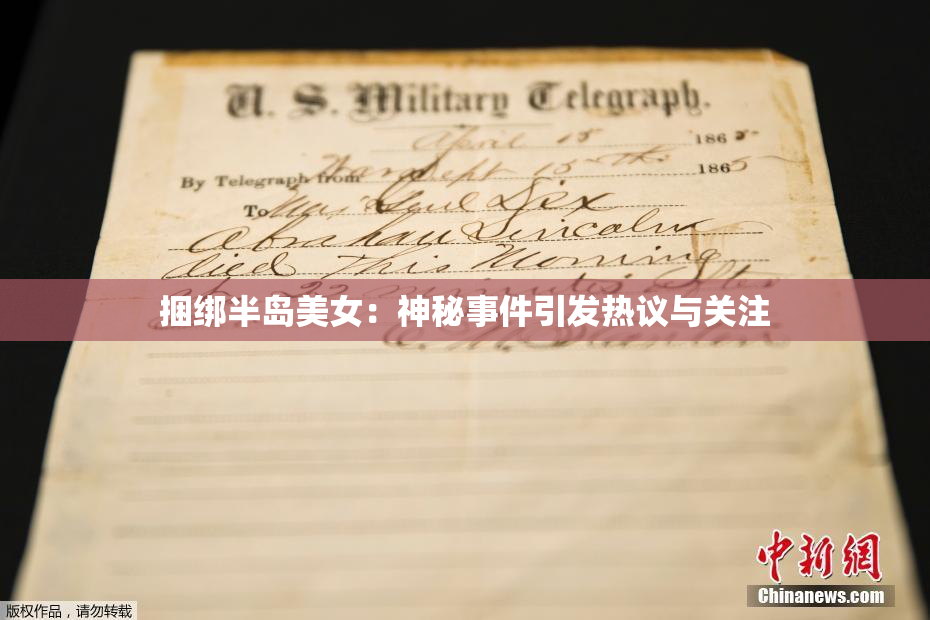 U. S. Military Telegraph.
April 15 1865
By Telegraph from War Dept 15th 1865
To Maj Genl Dix
Abraham Lincoln
died This Morning
at 22 minutes after
捆绑半岛美女：神秘事件引发热议与关注
E. M. Stanton
中新网
Chinanews.com
版权作品，请勿转载